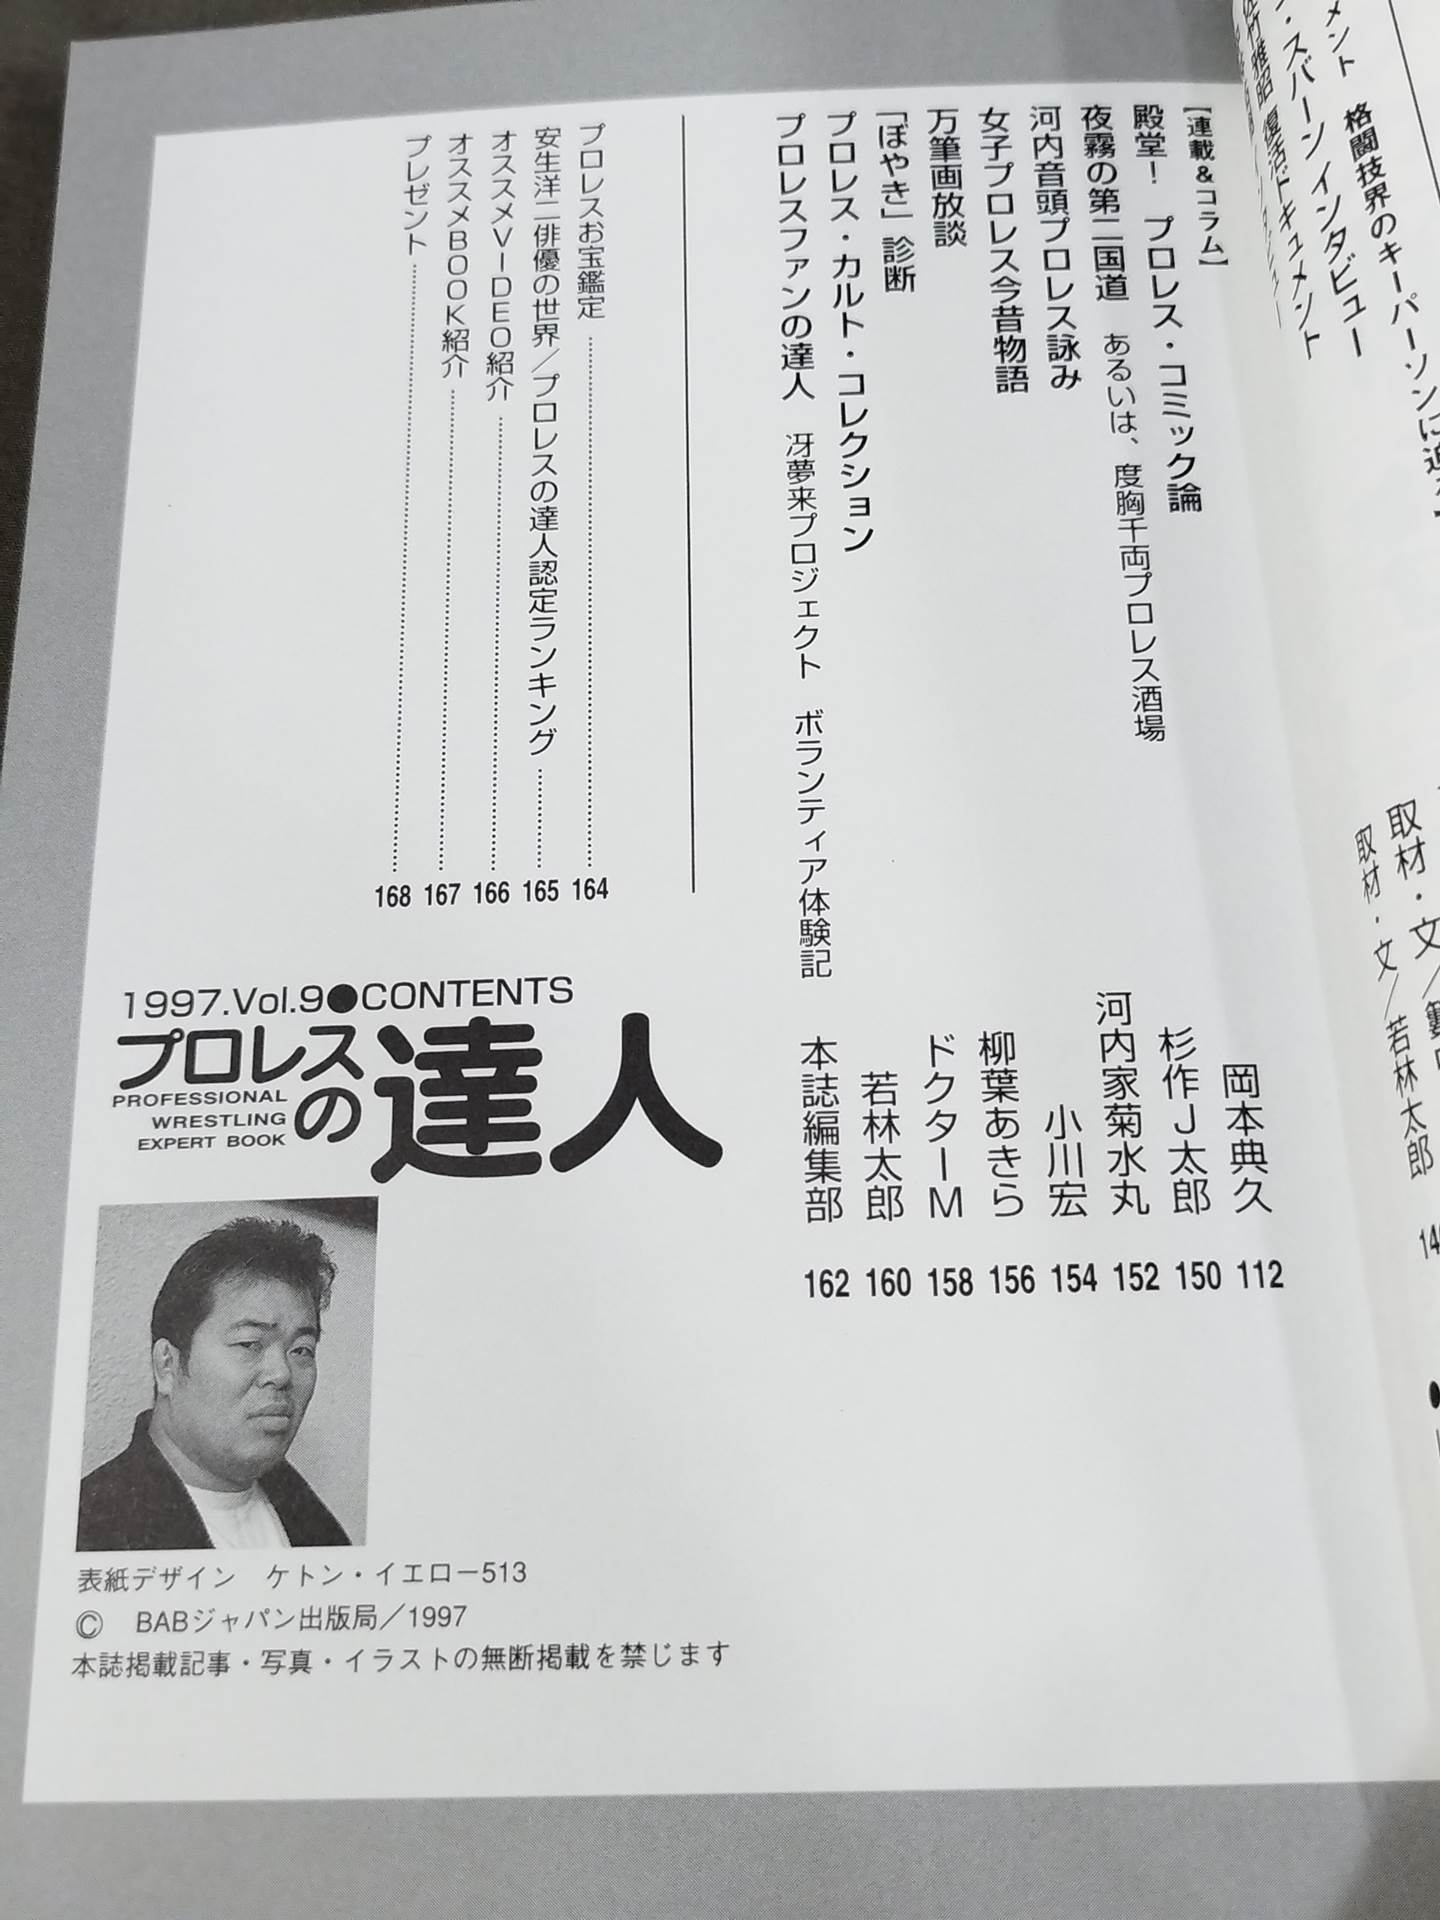 メント 格闘技界のキーパーソンに迫る】
・スパーン インタビュー
佐竹雅昭 復活ドキュメント
取材・文／
取材・文／若林太郎
【連載&コラム】
殿堂! プロレス・コミック論 岡本典久 112
夜霧の第二国道 あるいは、度胸千両プロレス酒場 杉作J太郎 150
河内音頭プロレス詠み 河内家菊水丸 152
女子プロレス今昔物語 小川宏 154
万筆画放談 柳葉あきら 156
「ぼやき」診断 ドクターM 158
プロレス・カルト・コレクション 若林太郎 160
プロレスファンの達人 冴夢来プロジェクト ボランティア体験記 本誌編集部 162
プロレスお宝鑑定 164
安生洋二俳優の世界／プロレスの達人認定ランキング 165
オススメVIDEO紹介 166
オススメBOOK紹介 167
プレゼント 168
1997.Vol.9●CONTENTS
プロレスの達人
PROFESSIONAL
WRESTLING
EXPERT BOOK
表紙デザイン ケトン・イエロー513
© BABジャパン出版局／1997
本誌掲載記事・写真・イラストの無断掲載を禁じます